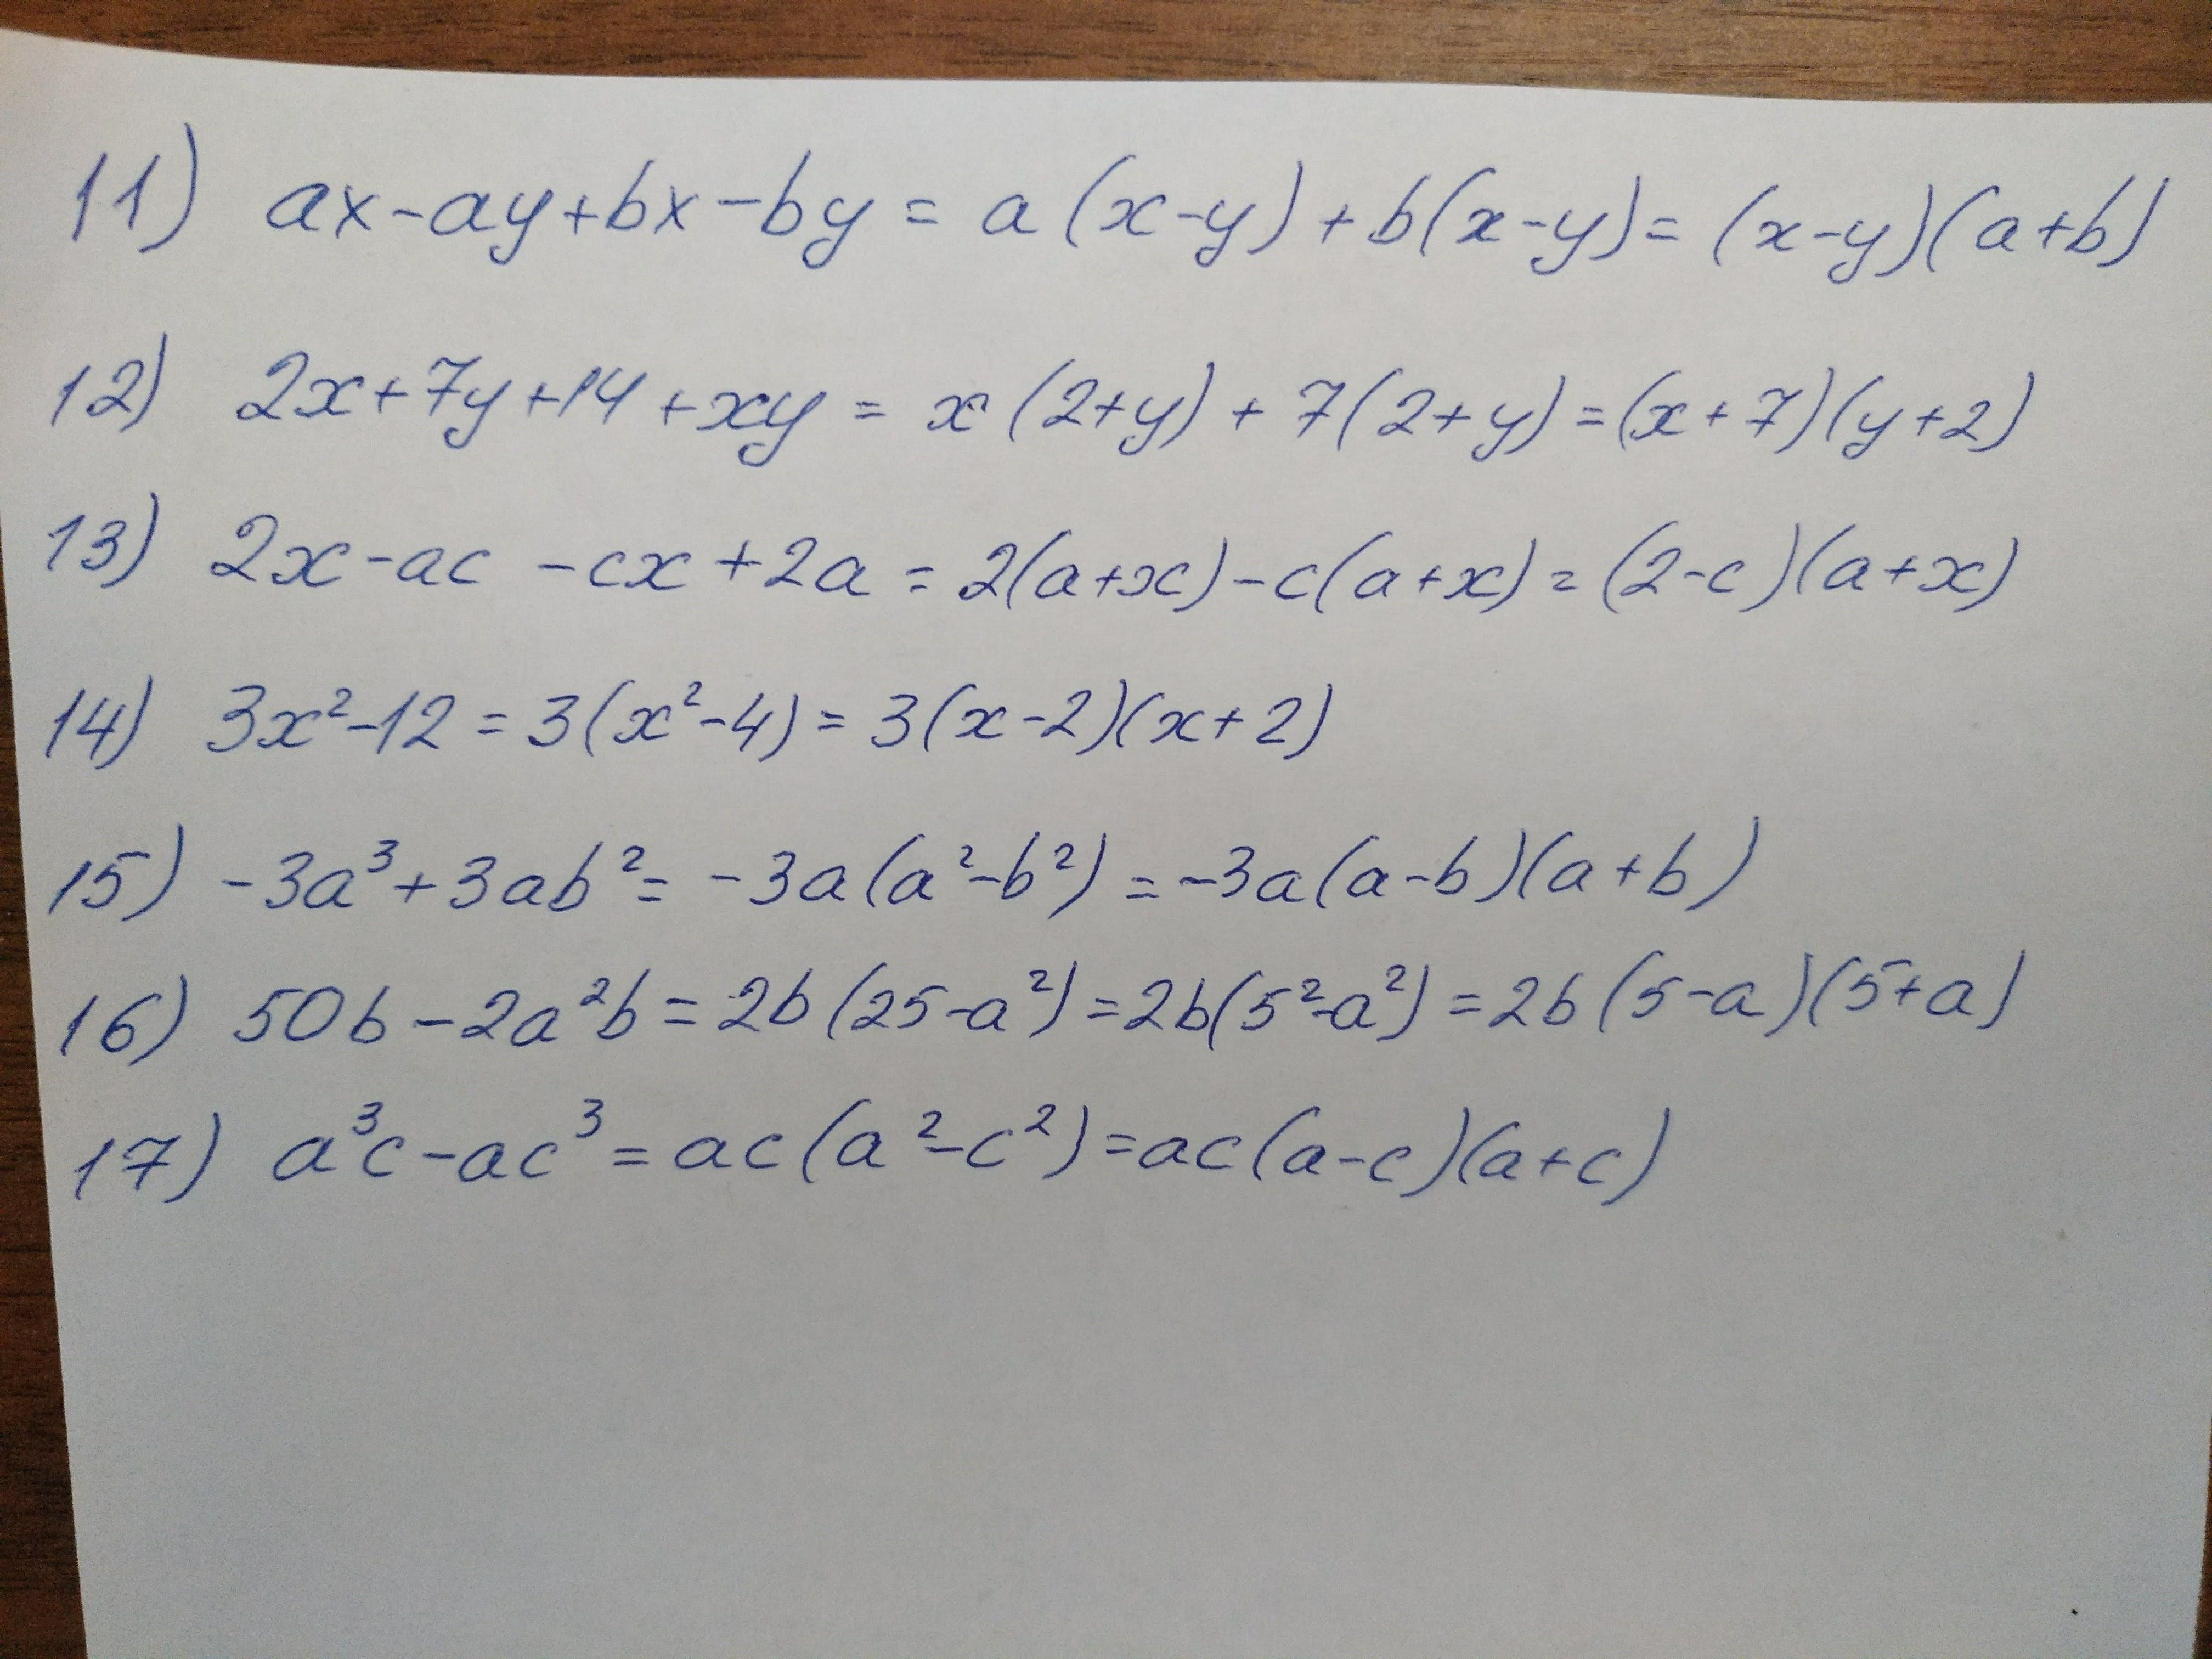 11) ax-ay+bx-by = a(x-y)+b(x-y)= (x-y)(a+b)
12) 2x+7y+14+xy = x(2+y)+7(2+y)=(x+7)(y+2)
13) 2x-ac-cx+2a = 2(a+x)-c(a+x)= (2-c)(a+x)
14) 3x²-12 = 3(x²-4)= 3(x-2)(x+2)
15) -3a³+3ab²= -3a(a²-b²) =-3a(a-b)(a+b)
16) 50b-2a²b= 2b(25-a²)=2b(5²-a²)=2b(5-a)(5+a)
17) a³c-ac³=ac(a²-c²)=ac(a-c)(a+c)